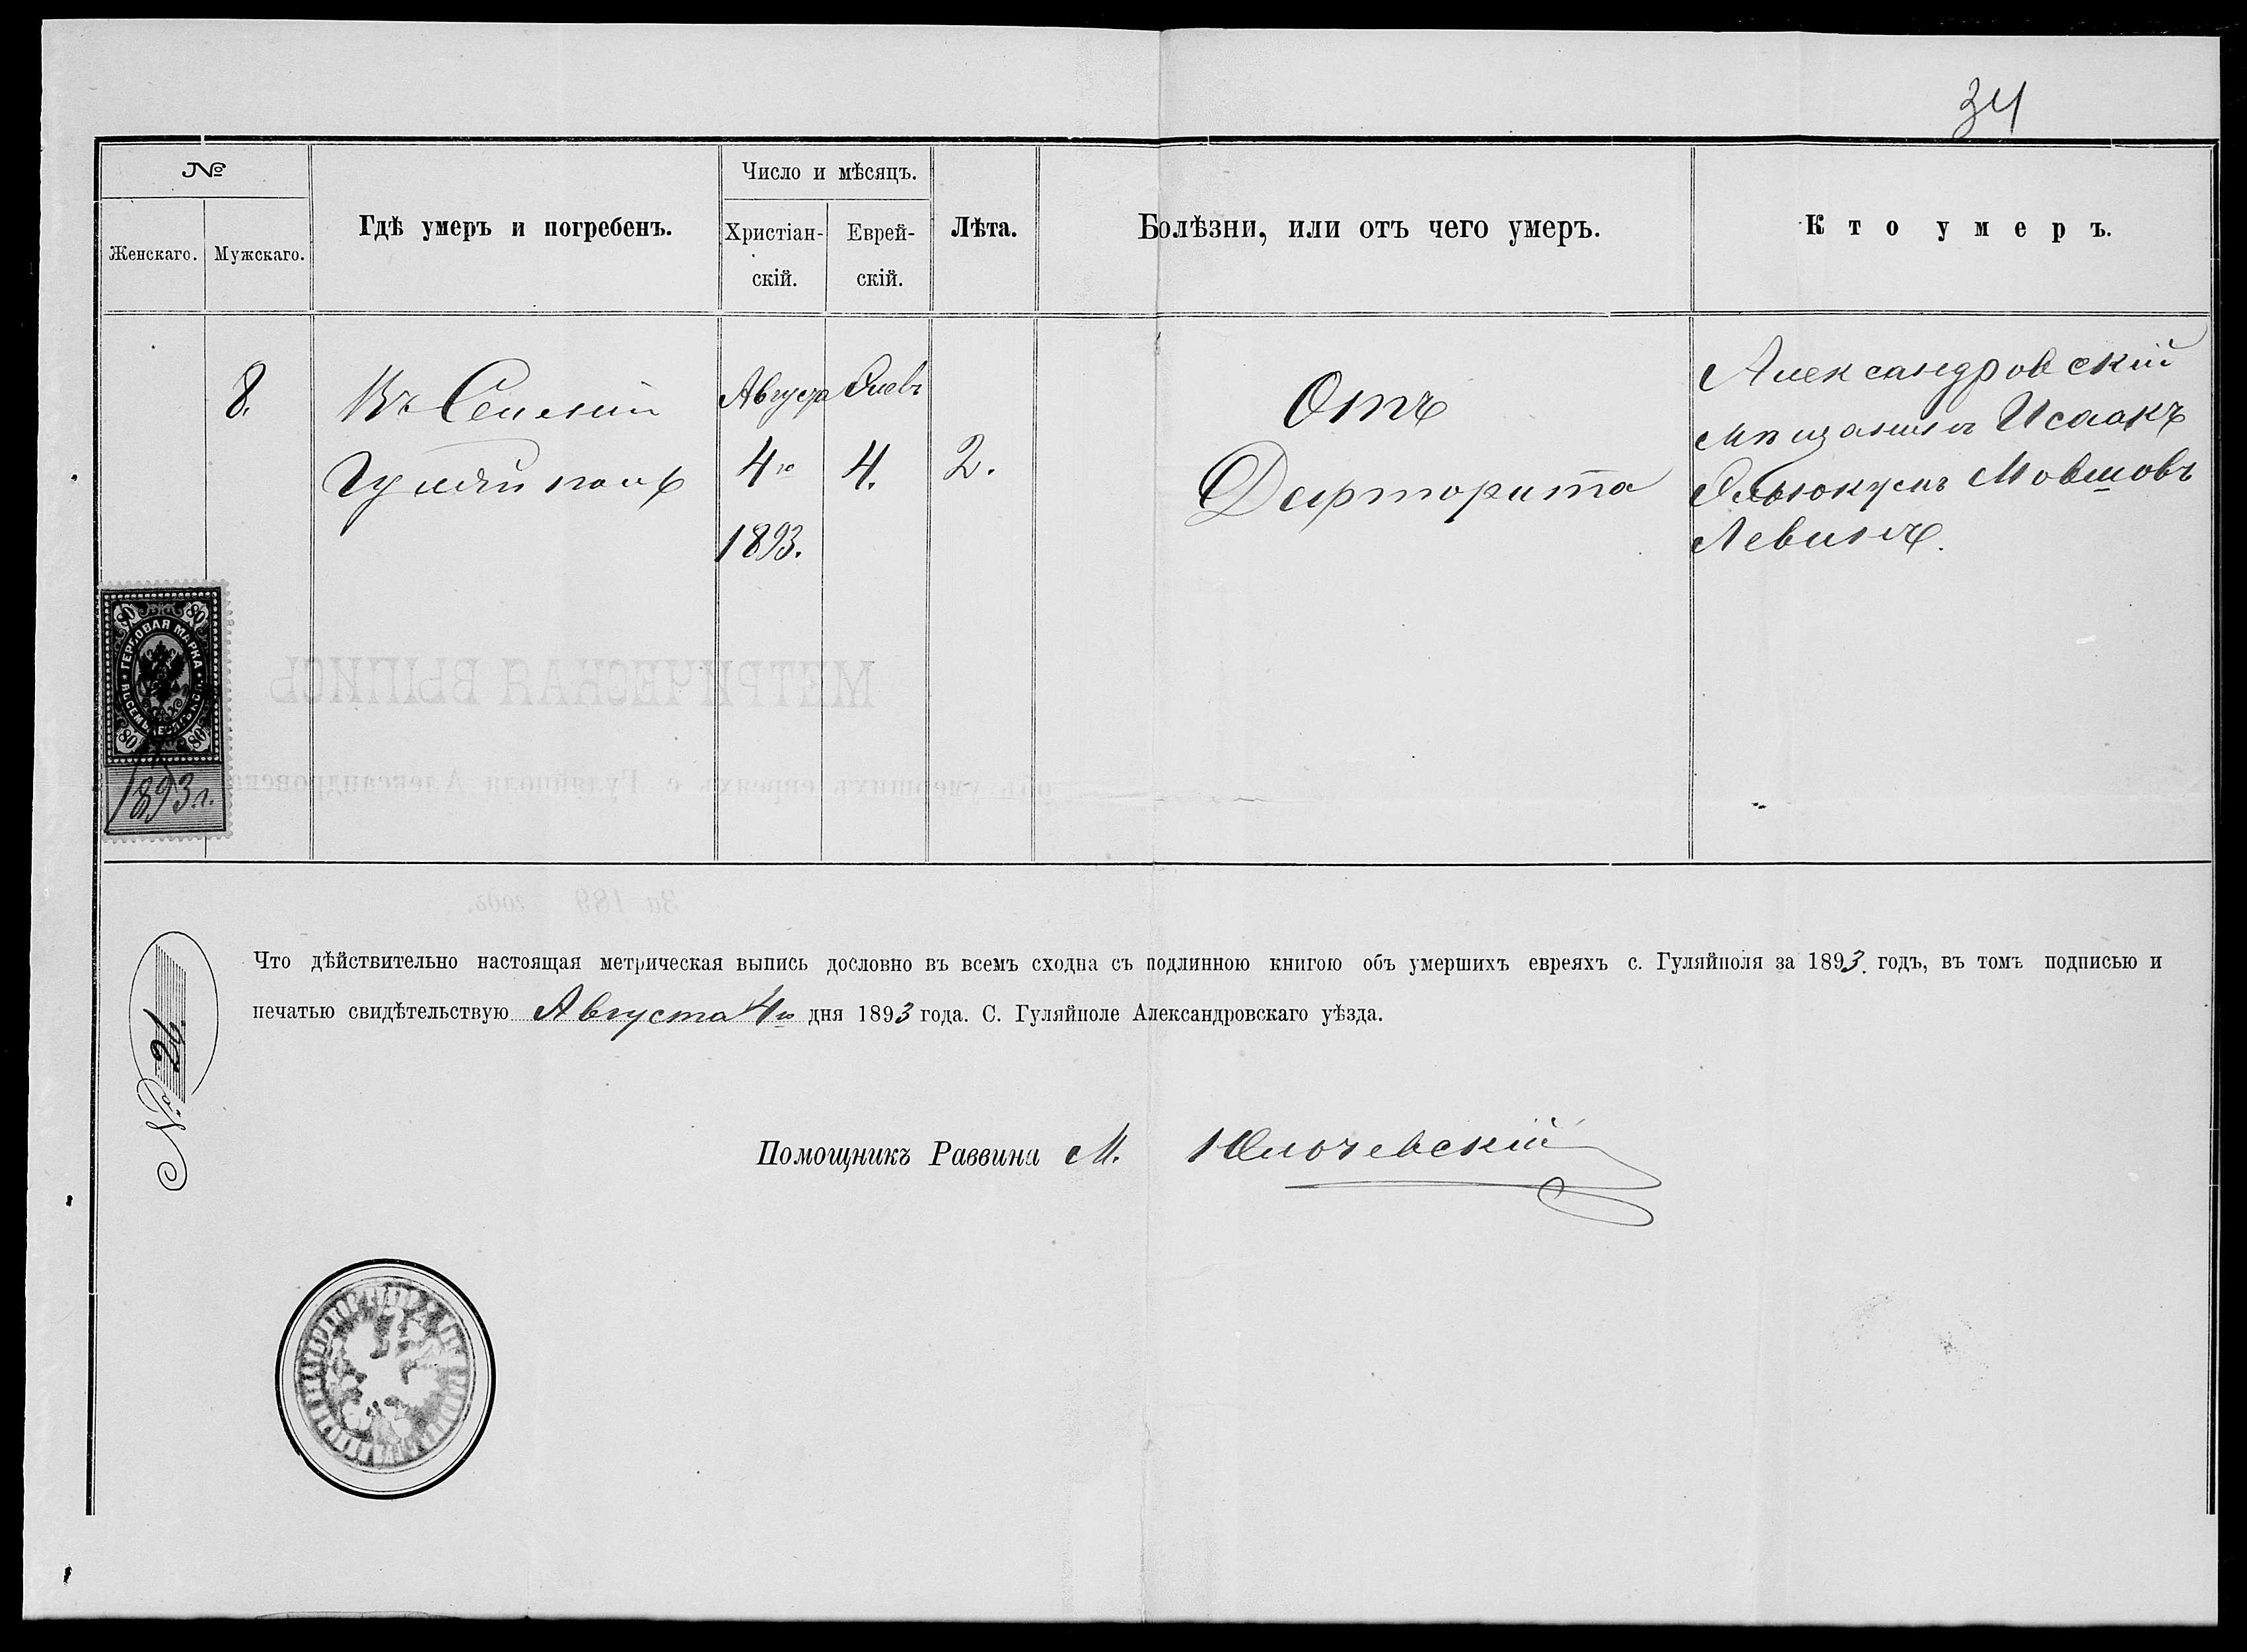 34
№
Женскаго. Мужскаго.
Гдѣ умеръ и погребенъ.
Число и мѣсяцъ.
Христіан-
скій.
Еврей-
скій.
Лѣта.
Болѣзни, или отъ чего умеръ.
Кто умеръ.
8.
Въ Селеніи
Гуляйполѣ
Августа
4го
1893.
Элевъ
4.
2.
Отъ
Дифторита
Александровскій
мѣщанинъ Исаакъ
Мовшовъ
Левинъ.
80 80
ГЕРБОВАЯ МАРКА
ВОСЕМЬДЕСЯТЪ КОП.
80 80
1893 г.
МЕТРИЧЕСКАЯ ВЫПИСЬ
объ умершихъ евреяхъ с. Гуляйполя Александровска
За 189 годъ.
Что дѣйствительно настоящая метрическая выпись дословно въ всемъ сходна съ подлинною книгою объ умершихъ евреяхъ с. Гуляйполя за 1893. годъ, въ томъ подписью и
печатью свидѣтельствую Августа 4го дня 1893 года. С. Гуляйполе Александровскаго уѣзда.
№ 26.
Помощникъ Раввина М. Ключевскій